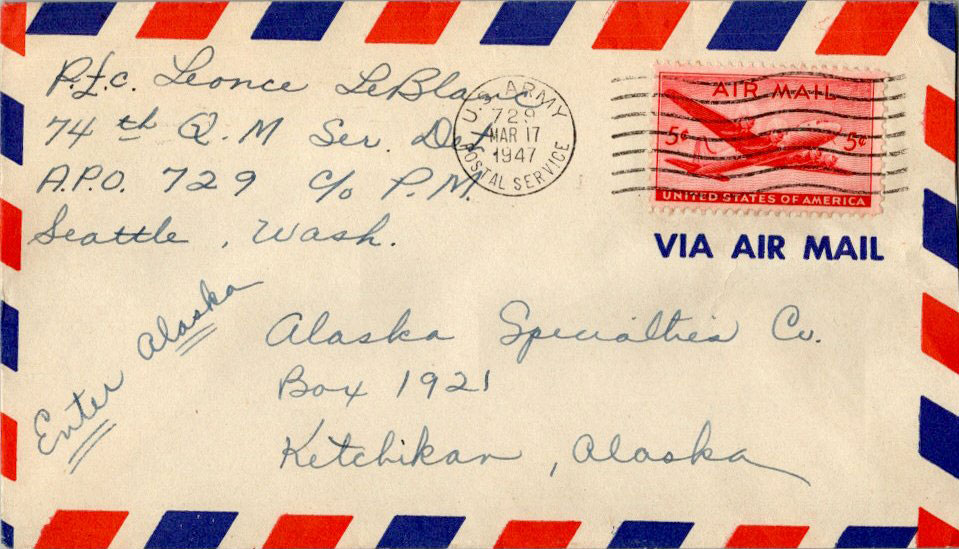 P.f.c. Leonce LeBlanc
74th Q.M Ser. Det
A.P.O. 729 c/o P.M.
Seattle, Wash.
U.S. ARMY
729
MAR 17
1947
POSTAL SERVICE
AIR MAIL
5¢ 5¢
UNITED STATES OF AMERICA
VIA AIR MAIL
Enter Alaska
Alaska Specialties Co.
Box 1921
Ketchikan, Alaska